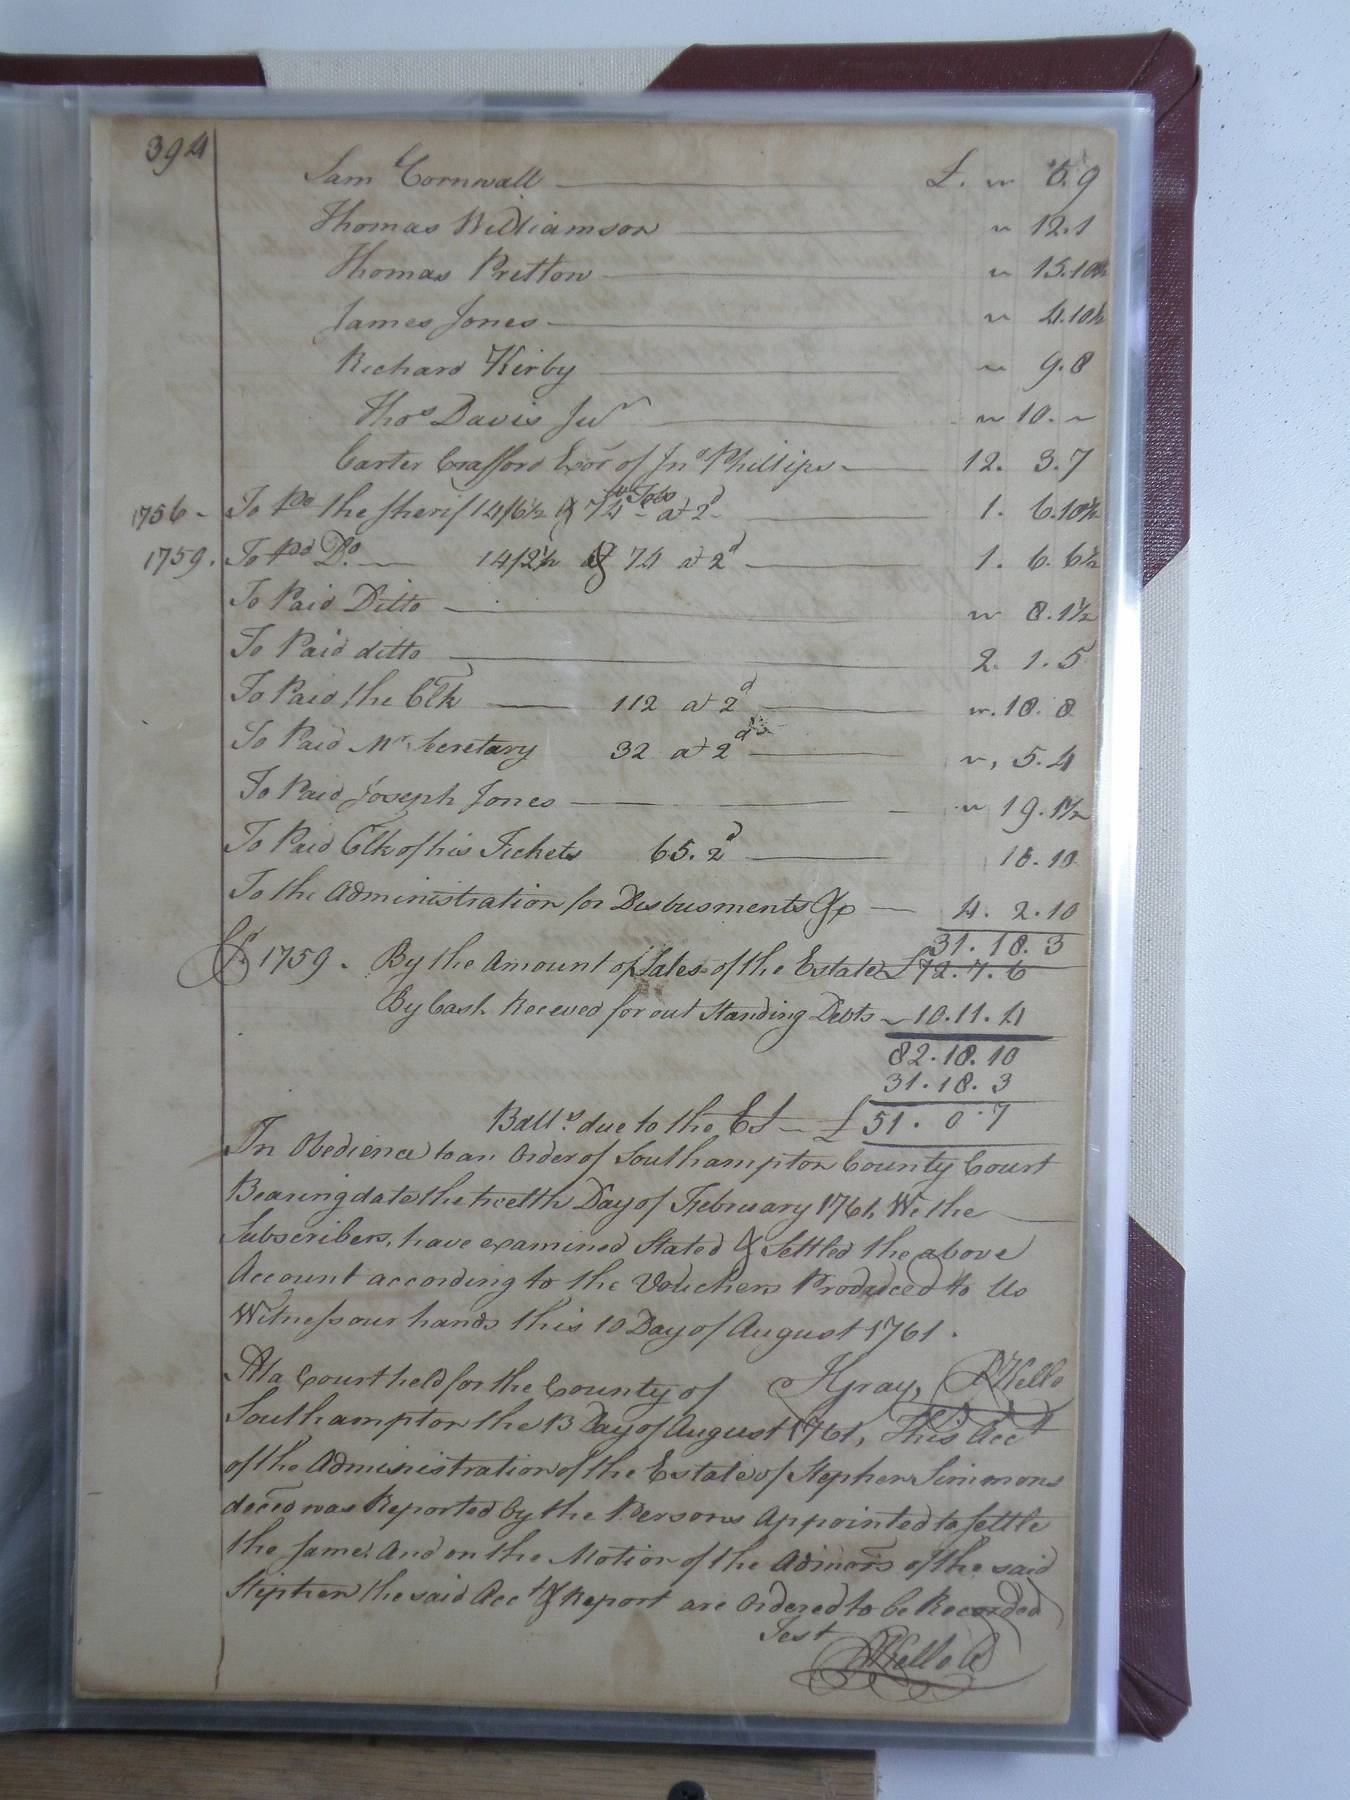 394
Sam Cornwall £. " 5.9
Thomas Williamson " 12.1
Thomas Pretlow " 15.10½
James Jones " 4.10½
Richard Kirby " 9.8
Thos Davis Junr " 10. "
Carter Crafford Exor of Jno Phillips 12. 3.7
1756 - To Pd the Sherif 14/6½ & 74 lb Tobo at 2d 1. 6.10½
1759. To Pd Do. 14/2½ & 74 at 2d 1. 6. 6½
To Paid Ditto " 8.1½
To Paid ditto 2. 1. 5
To Paid the Clk 112 at 2d ". 18. 8
To Paid Mr Secretary 32 at 2d ", 5.4
To Paid Joseph Jones " 19.1½
To Paid Clk of his Tickets 65. 2d 10.10
To the Administration for Disbusments &c 4. 2.10
31.18.3
Cr 1759. By the Amount of Sales of the Estate £72.7.6
By Cash Received for out Standing Debts 10.11.4
82.18.10
31.18.3
Balle. due to the Est £ 51. 0.7
In Obedience to an Order of Southampton County Court
Bearing date the twelth Day of February 1761, We the
Subscribers, have examined Stated & Settled the above
Account according to the Vouchers Produced to Us
Witness our hands this 10 Day of August 1761.
At a Court held for the County of JGray, RKello
Southampton the 13 Day of August 1761, This Acct
of the Administration of the Estate of Stephen Simmons
deced was Reported by the Persons Appointed to Settle
the same; And on the Motion of the Admors of the said
Stephen the said Acct & Report are Ordered to be Recorded
Test
RKello C